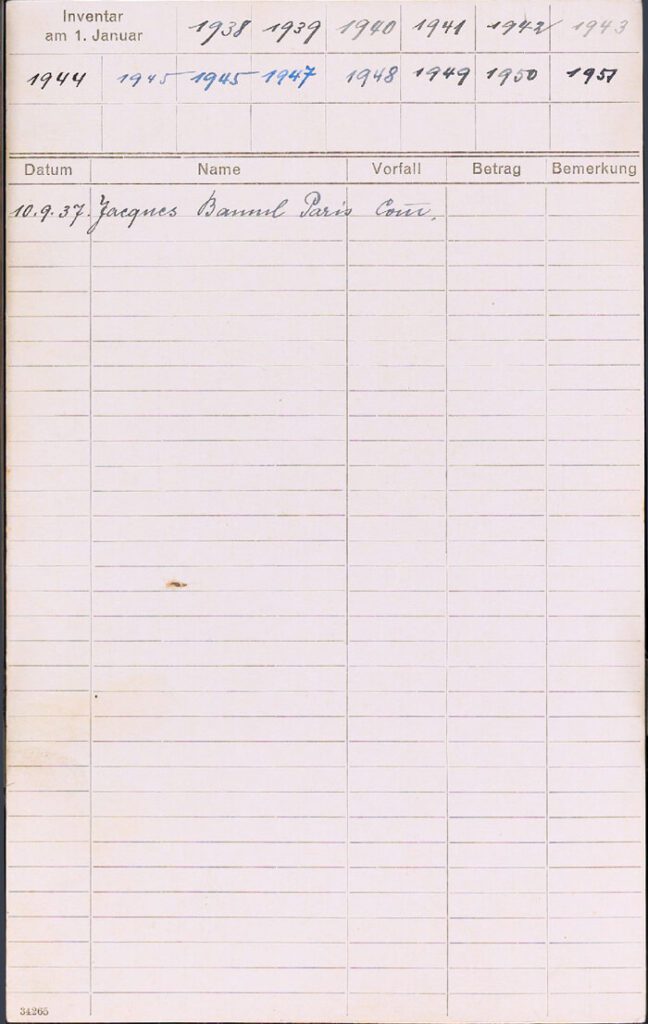 Inventar
am 1. Januar 1938 1939 1940 1941 1942 1943
1944 1945 1945 1947 1948 1949 1950 1951
Datum Name Vorfall Betrag Bemerkung
10.9.37. Jacques Paris Com̅.
34265